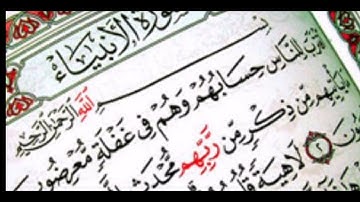 سورة الأنبياء
بسم الله الرحمن الرحيم
للناس حسابهم وهم في غفلة معرضون
من ذكر من ربهم محدث
لاهية قلو